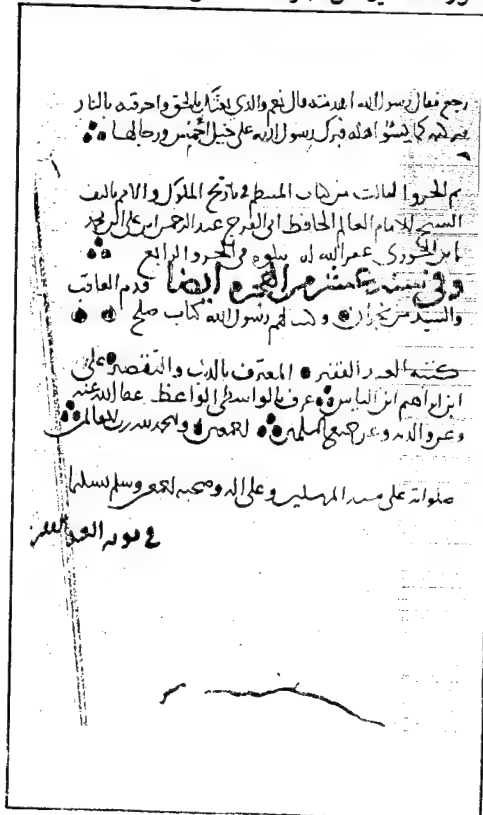 رجع فقال يرسول الله اهدمته قال نعم والذي بعثك بالحق واحرقته بالنار
فتركته كما يسوء اهله فبرك رسول الله على خيل احمس ورجالها
تم الجزو الثالث من كتاب المنتظم في تاريخ الملوك والامم تاليف
الشيخ الامام العالم الحافظ ابي الفرج عبد الرحمن ابن علي ابن محمد
ابن الجوزي غفر الله له يتلوه في الجزو الرابع
وفي سنة عشر من الهجرة ايضا قدم العاقب
والسيد من نجران وكتب لهم رسول الله كتاب صلح
كتبه العبد الفقير المعترف بالذنب والتقصير على
ابن ابراهيم ابن الياس عرف بالواسطي الواعظ عفا الله عنه
وعن والديه وعن جميع المسلمين اجمعين والحمد لله رب العالمين
صلواته على سيد المرسلين وعلى اله وصحبه اجمعين وسلم تسليما
في نوبة العبد الفقير